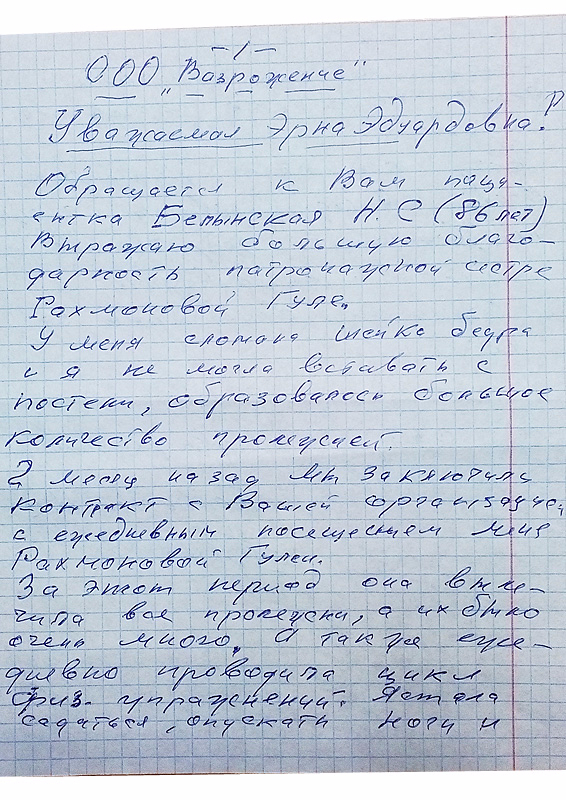 -1-
ООО „Вазрожение"
Уважаемая Эрна Эдуардовна!
Обращается к Вам паци-
ентка Белынская Н. С (86 лет)
Выражаю большую благо-
дарность патронажной сестре
Рахмоновой Гуле.
У меня сломана шейка бедра
и я не могла вставать с
постели, образовалось большое
количество пролежней.
2 месяц назад мы заключили
контракт с Вашей организацией,
с ежедневным посещением меня
Рахмоновой Гулей.
За этот период она выле-
чила все пролежни, а их было
очень много. А также еже-
дневно проводила цикл
физ. упражнений. Я стала
садиться, опускать ноги и